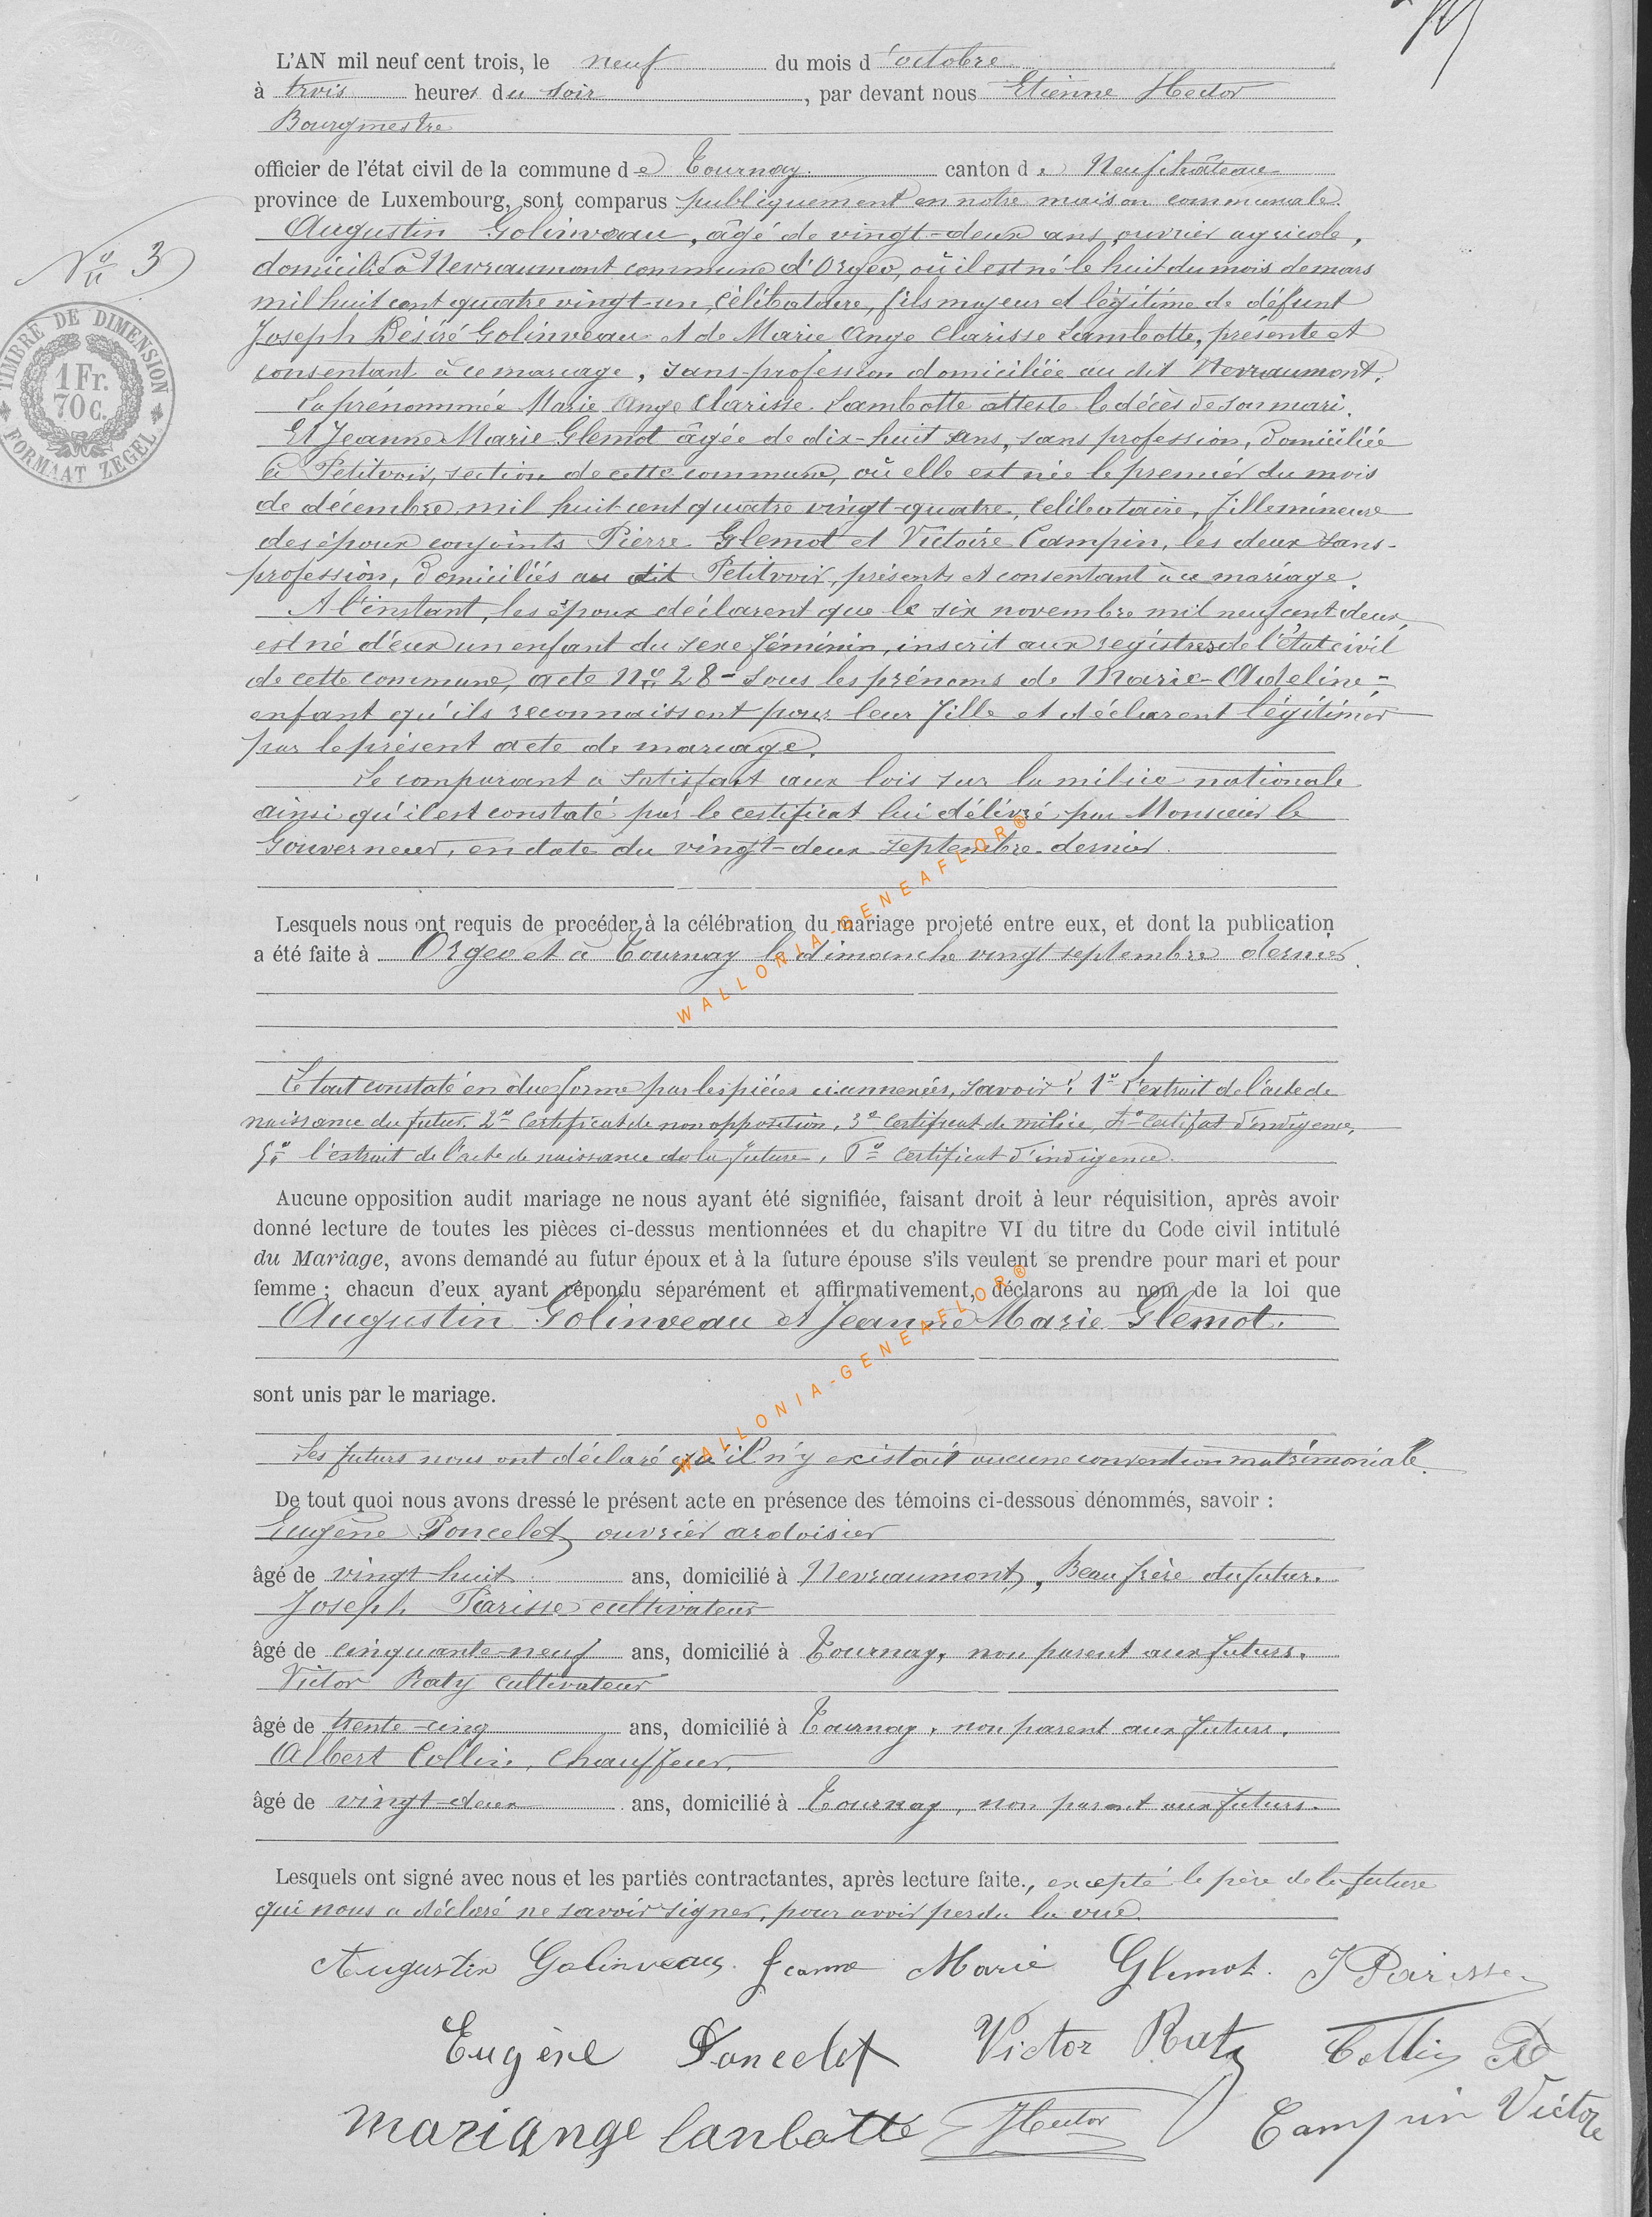 L'AN mil neuf cent trois, le neuf du mois d'octobre
à trois heures du soir, par devant nous Etienne Hector
Bourgmestre
officier de l'état civil de la commune de Tournay canton de Neufchâteau
province de Luxembourg, sont comparus publiquement en notre maison communale.
Augustin Golinveau, âgé de vingt-deux ans, ouvrier agricole,
N° 3
domicilié à Nevraumont commune d'Orgeo, où il est né le huit du mois de mars
mil huit cent quatre vingt-un, célibataire, fils majeur et légitime de défunt
Joseph Désiré Golinveau et de Marie Ange Clarisse Lambotte, présente et
consentant à ce mariage, sans-profession domiciliée au dit Nevraumont.
La prénommée Marie Ange Clarisse Lambotte atteste le décès de son mari.
Et Jeanne Marie Glemot âgée de dix-huit ans, sans profession, domiciliée
à Petitvoir, section de cette commune, où elle est née le premier du mois
de décembre mil huit cent quatre vingt-quatre, célibataire, fille mineure
des époux conjoints Pierre Glemot et Victoire Campin, les deux sans-
profession, domiciliés au dit Petitvoir, présents et consentant à ce mariage.
A l'instant, les époux déclarent que le six novembre mil neuf cent deux,
est né d'eux un enfant du sexe féminin, inscrit aux registres de l'état civil
de cette commune, acte N° 28 - sous les prénoms de Marie-Adeline;-
enfant qu'ils reconnaissent pour leur fille et déclarent légitimer
par le présent acte de mariage.
Le comparant a satisfait aux lois sur la milice nationale
ainsi qu'il est constaté par le certificat lui délivré par Monsieur le
Gouverneur, en date du vingt-deux septembre dernier.
Lesquels nous ont requis de procéder à la célébration du mariage projeté entre eux, et dont la publication
a été faite à Orgeo et à Tournay le dimanche vingt septembre dernier.
WALLONIA-GENEAFLOR®
Le tout constaté en due forme par les pièces ci-annexées, savoir: 1° L'extrait de l'acte de
naissance du futur. 2° Certificat de non opposition, 3° certificat de milice, 4° certifat d'indigence,
5° l'extrait de l'acte de naissance de la future, 6° certificat d'indigence.
Aucune opposition audit mariage ne nous ayant été signifiée, faisant droit à leur réquisition, après avoir
donné lecture de toutes les pièces ci-dessus mentionnées et du chapitre VI du titre du Code civil intitulé
du Mariage, avons demandé au futur époux et à la future épouse s'ils veulent se prendre pour mari et pour
femme; chacun d'eux ayant répondu séparément et affirmativement, déclarons au nom de la loi que
Augustin Golinveau et Jeanne Marie Glemot.
sont unis par le mariage.
WALLONIA-GENEAFLOR®
Les futurs nous ont déclaré qu'il n'y existait aucune convention matrimoniale.
De tout quoi nous avons dressé le présent acte en présence des témoins ci-dessous dénommés, savoir :
Eugène Poncelet, ouvrier ardoisier
âgé de vingt-huit ans, domicilié à Nevraumont, Beau frère du futur.
Joseph Parisse cultivateur
âgé de cinquante-neuf ans, domicilié à Tournay, non parent aux futurs.
Victor Raty cultivateur
âgé de trente-cinq ans, domicilié à Tournay, non parent aux futurs.
Albert Collin, chauffeur,
âgé de vingt-deux ans, domicilié à Tournay, non parent aux futurs.
Lesquels ont signé avec nous et les parties contractantes, après lecture faite., excepté le père de la future
qui nous a déclaré ne savoir signer, pour avoir perdu la vue.
Augustin Golinveau. Jeanne Marie Glemot. J Parisse
Eugène Poncelet Victor Raty Collin A
Mariange Lanbotte Hector Campin Victore
TIMBRE DE DIMENSION
1 Fr.
70 C.
FORMAAT ZEGEL